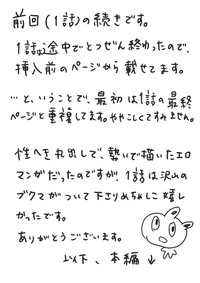 前回(1話)の続きです。
1話は途中でとつぜん終わったので、
挿入前のページから載せてます。
…と、いうことで、最初は1話の最終
ページと重複してます。ややこしくてすみません。
性へきを丸出しで、勢いで描いたエロ
マンガだったのですが、1話は沢山の
ブクマがついて下さりめちゃくちゃ嬉し
かったです。
ありがとうございます。
以下、本編↓